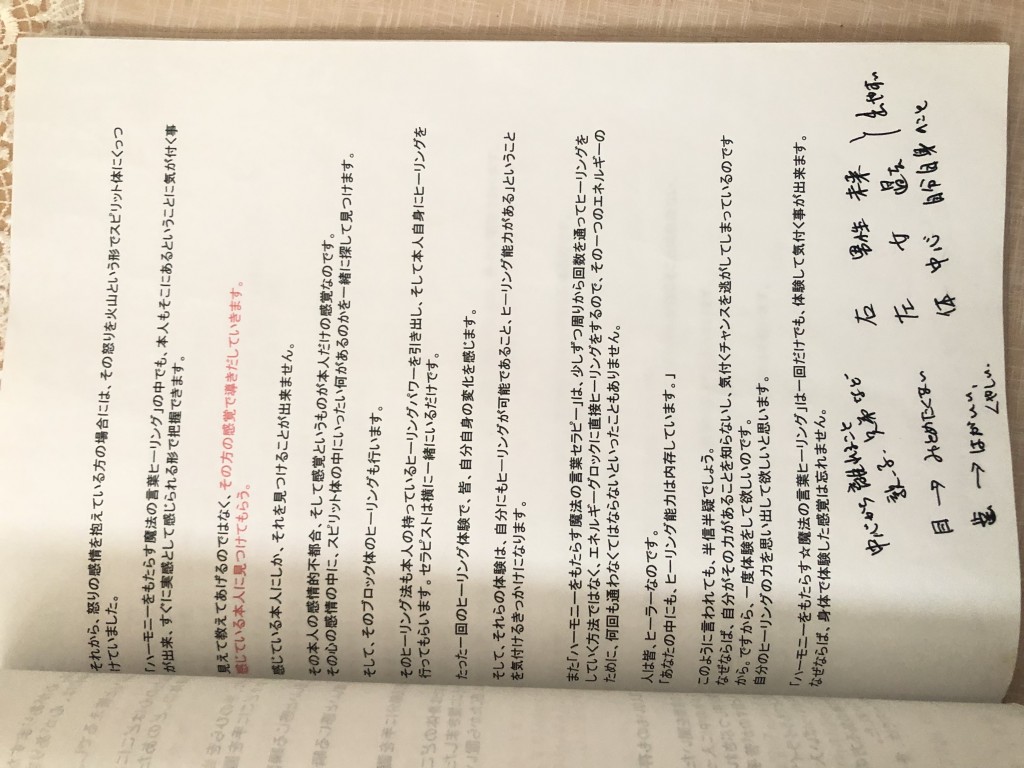 それから、怒りの感情を抱えている方の場合には、その怒りを火山という形でスピリット体にくっつ
けていました。
「ハーモニーをもたらす魔法の言葉ヒーリング」の中でも、本人もそこにあるということに気が付く事
が出来、すぐに実感として感じられる形で把握できます。
見えて教えてあげるのではなく、その方の感覚で導きだしていきます。
感じている本人に見つけてもらう。
感じている本人にしか、それを見つけることが出来ません。
その本人の感情的不都合、そして感覚というものが本人だけの感覚なのです。
その心の感情の中に、スピリット体の中にいったい何があるのかを一緒に探して見つけます。
そして、そのブロック体のヒーリングも行います。
そのヒーリング法も本人の持っているヒーリングパワーを引き出し、そして本人自身にヒーリングを
行ってもらいます。セラピストは横に一緒にいるだけです。
たった一回のヒーリング体験で、皆、自分自身の変化を感じます。
そして、それらの体験は、自分にもヒーリングが可能であること、ヒーリング能力がある」ということ
を気付けるきっかけになります。
また「ハーモニーをもたらす魔法の言葉セラピー」は、少しずつ周りから回数を通ってヒーリングを
していく方法ではなく、エネルギーブロックに直接ヒーリングをするので、その一つのエネルギーの
ために、何回も通わなくてはならないといったこともありません。
人は皆、ヒーラーなのです。
「あなたの中にも、ヒーリング能力は内存しています。」
このように言われても、半信半疑でしょう。
なぜならば、自分がその力があることを知らないし、気付くチャンスを逃がしてしまっているのです
から。ですから、一度体験をして欲しいのです。
自分のヒーリングの力を思い出して欲しいと思います。
「ハーモニーをもたらす☆魔法の言葉ヒーリング」は一回だけでも、体験して気付く事が出来ます。
なぜならば、身体で体験した感覚は忘れません。
中心から離れること
右 男性 未来
左 女 過去
体 中心 自分自身のこと
目 → みとめたくない
歯 → はがいい、
くやしい。